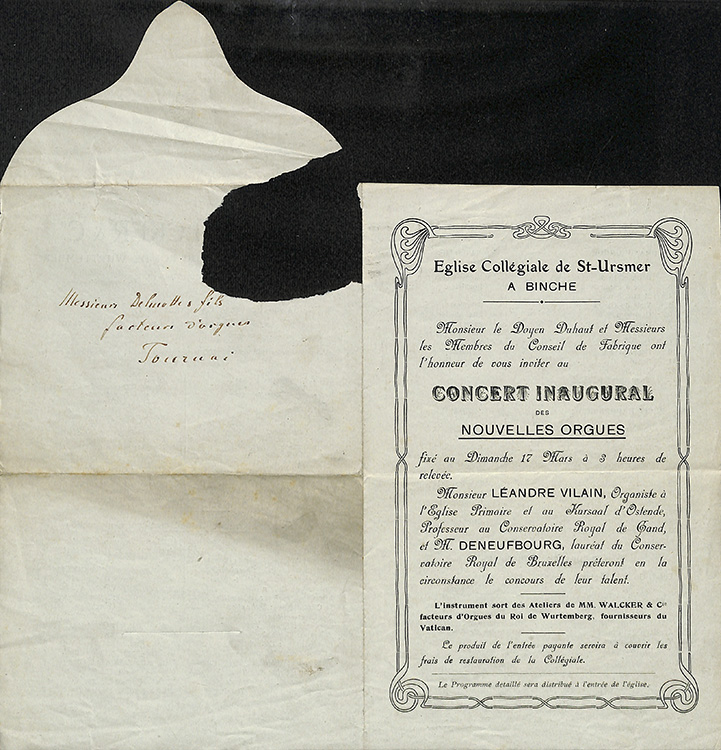 Messieurs Delmotte & fils
facteurs d'orgues
Tournai
Eglise Collégiale de St-Ursmer
A BINCHE
Monsieur le Doyen Duhaut et Messieurs
les Membres du Conseil de Fabrique ont
l'honneur de vous inviter au
CONCERT INAUGURAL
DES
NOUVELLES ORGUES
fixé au Dimanche 17 Mars à 3 heures de
relevée.
Monsieur LÉANDRE VILAIN, Organiste à
l'Eglise Primaire et au Kursaal d'Ostende,
Professeur au Conservatoire Royal de Gand,
et M. DENEUFBOURG, lauréat du Conser-
vatoire Royal de Bruxelles prêteront en la
circonstance le concours de leur talent.
L'instrument sort des Ateliers de MM. WALCKER & Cie
facteurs d'Orgues du Roi de Wurtemberg, fournisseurs du
Vatican.
Le produit de l'entrée payante servira à couvrir les
frais de restauration de la Collégiale.
Le Programme détaillé sera distribué à l'entrée de l'église.